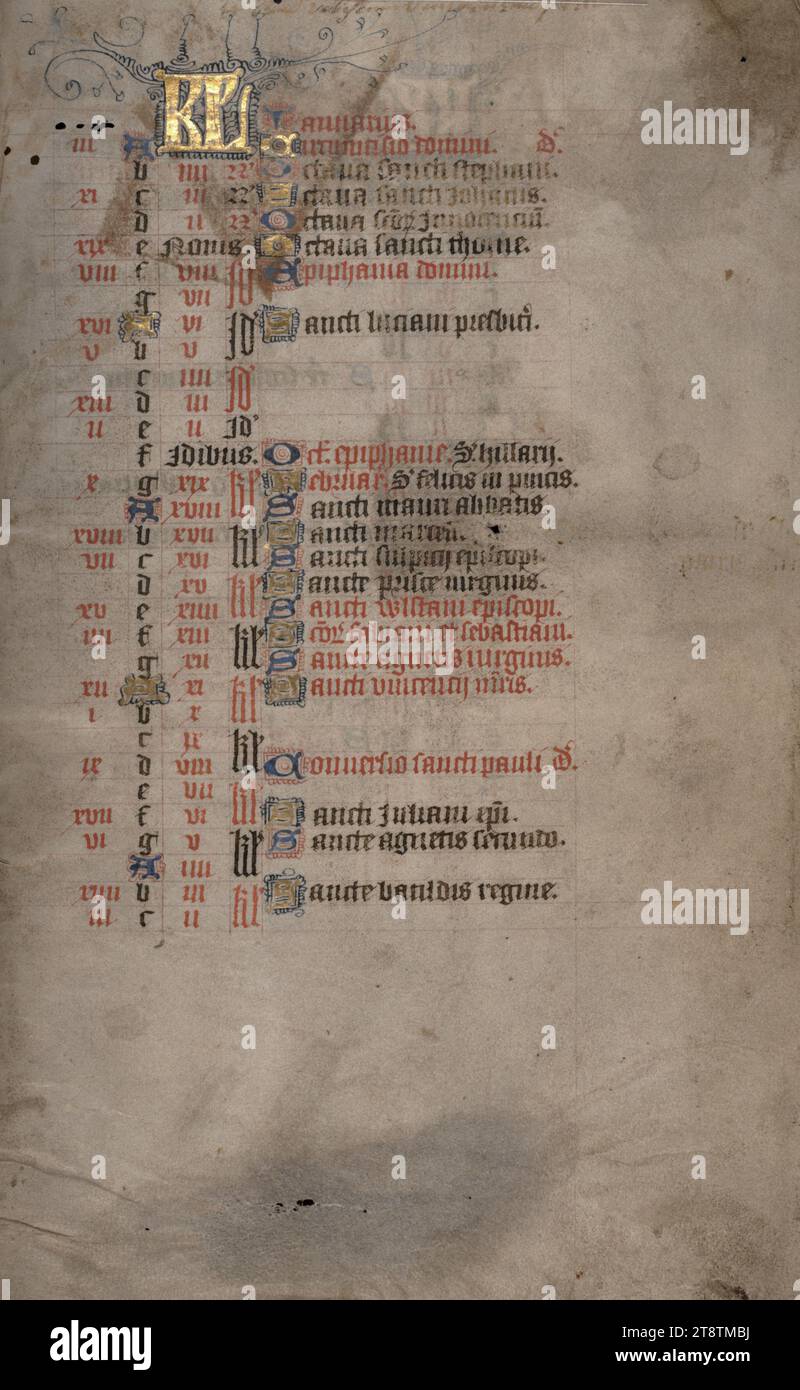 KL Januarius.
iii A Circumcisio domini. d.
b iiii N Octaua sancti stephani.
xi c iii N Octaua sancti Johannis.
d ii N Octaua sctor Innocenciu.
xix e Nonis Octaua sancti thome.
viii f viii Id Epiphania domini.
g vii Id
xvi A vi Id Sancti luciani presbiteri.
v b v Id
c iiii Id
xiii d iii Id
ii e ii Id'
f Idibus. Oct. epiphanie. Sci hillarij.
x g xix kl Februar. Sci felicis in pincis.
A xviii kl Sancti mauri abbatis
xviii b xvii kl Sancti marcelli.
vii c xvi kl Sancti sulpicij episcopi.
d xv kl Sancte prisce uirginis.
xv e xiiii kl Sancti wlstani episcopi.
iiii f xiii kl Scor fabiani et sebastiani.
g xii kl Sancte agnetis uirginis.
xii A xi kl Sancti vincencij mris.
i b x kl
c ix kl
ix d viii kl Conuersio sancti pauli d.
e vii kl
xvii f vi kl Sancti Juliani epi.
vi g v kl Sancte agnetis secundo.
A iiii kl
xiiii b iii kl Sancte batildis regine.
iii c ii kl
alamy
Image ID: 2T8TMBJ
www.alamy.com